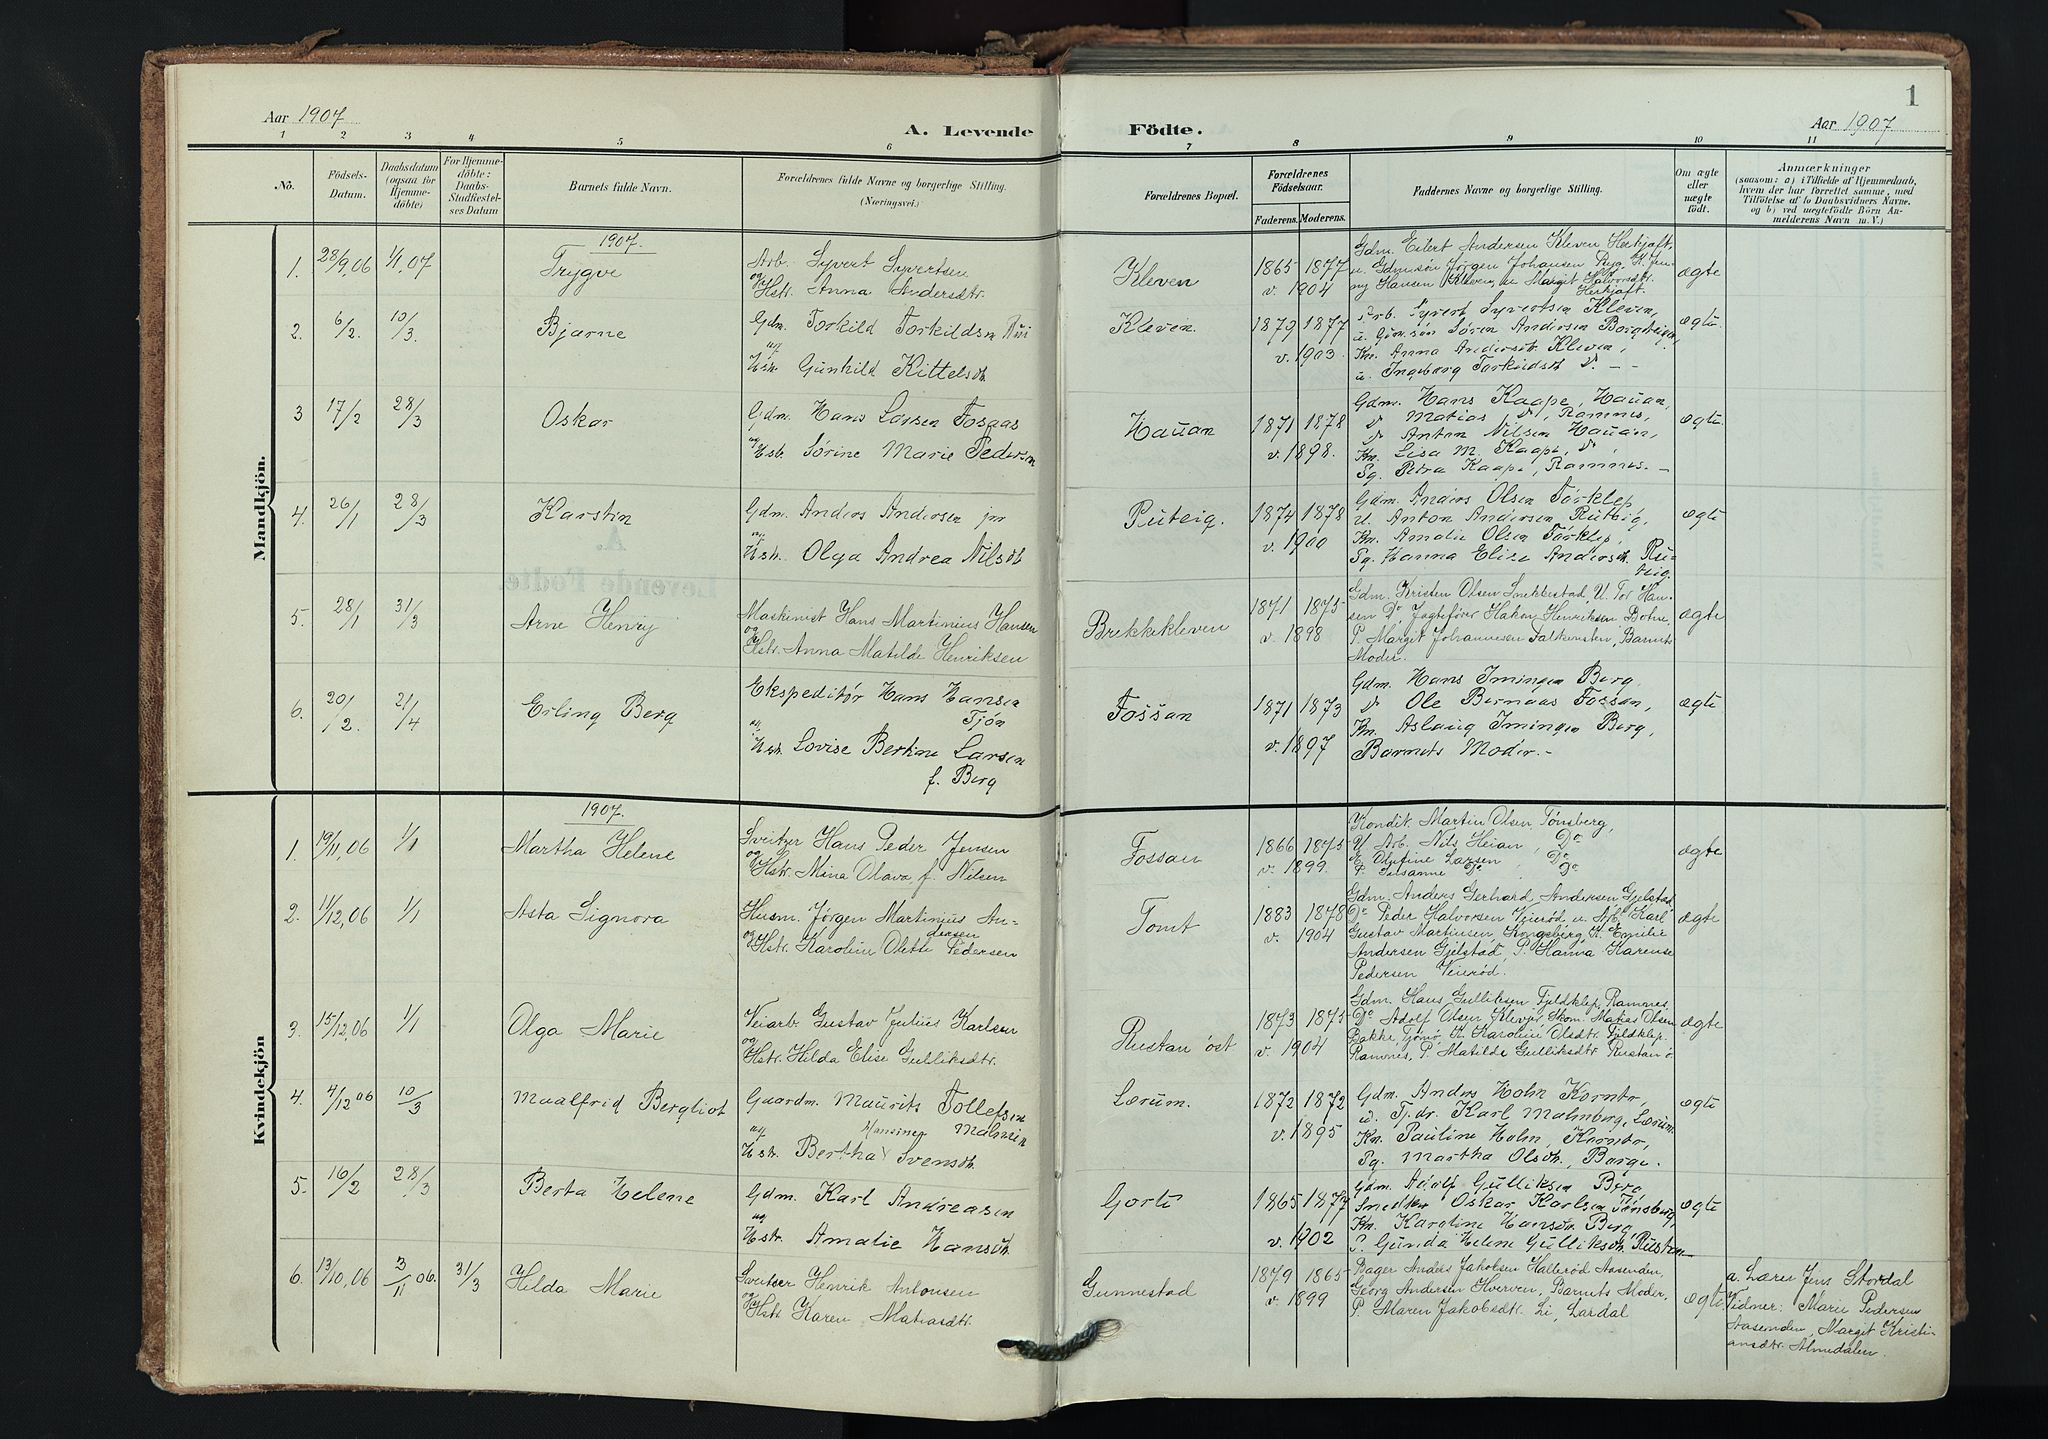 Aar 1907
A. Levende Födte.
1
Aar 1907
1 2 3 4 5 6 7 8 9 10 11
No.
Födsels-
Datum.
Daabsdatum
(ogsaa for
Hjemme-
döbte)
For Hjemme-
döbte:
Daabs-
Stadfæstel-
ses Datum
Barnets fulde Navn.
Forældrenes fulde Navne og borgerlige Stilling.
(Næringsvei.)
Forældrenes Bopæl.
Forældrenes
Födselsaar.
Faderens. Moderens.
Faddernes Navne og borgerlige Stilling.
Om ægte
eller
uægte
födt.
Anmærkninger
(saasom: a) i Tilfælde af Hjemmedaab,
hvem der har forrettet samme, med
Tilföielse af to Daabsvidners Navne.
og b) ved uægtefödte Börn An-
melderens Navn m. V.)
Mandkjön.
1907.
1. 28/9.06 1/1.07 Trygve
Arb. Syvert Syvertsen
og
Hstr. Anna Andersdtr.
Kleven
1865 1877
v. 1904
Gdm. Eilert Andersen Kleven Herkjaft,
u. Gdmsøn Jørgen Johansen K. Jen-
ny Hansen Kleven, u Margit Halvorsdtr.
Herkjaft.
ægte
2. 6/2. 10/3. Bjarne
Gdm. Torkild Torkildsen
og
Hstr. Gunhild Kittelsdtr.
Kleven
1879 1877
v. 1903.
Arb. Syvert Syvertsen Kleven,
u. Gdm.søn Søren Andersen Borgteigen,
Kn. Anna Andersdtr. Kleven,
u. Ingeborg Torkildsdtr Do. - -
ægte
3 17/2 28/3 Oskar
Gdm. Hans Larsen Fosaas
og
Hstr. Sørine Marie Pedersen
Hauan
1871 1878
v. 1898.
Gdm. Hans Kaape, Hauan,
Do Matias Do, Ramnes,
Do Anton Nilsen Hauan,
Kn. Lisa M. Kaape, Do,
Pg. Petra Kaape, Ramnes. -
ægte
4. 26/1 28/3 Karstin
Gdm. Anders Andersen jnr
og
Hstr. Olga Andrea Nilsdtr
Puteig.
1874 1878
v. 1900
Gdm. Anders Olsen Tørklep,
U. Anton Andersen Ruteig,
Kn. Amalie Olsen Tørklep,
Pg. Hanna Elise Andersdtr. Ru-
teig.
ægte
5. 28/1 31/3 Arne Henry
Maskinist Hans Martinius Hansen
og
Hstr. Anna Matilde Henriksen
Brekkekleven
1871 1875
v. 1898
Gdm. Kristen Olsen Snekkestad, U. Tor Han-
sen Do Jagtefører Hakon Henriksen Botne,
P. Margit Johannesen Falkensten, Barnets
Moder.
ægte
6. 20/2. 21/4 Erling Berg
Ekspeditør Hans Hansen
Tjøn
og
Hstr. Lovise Bertine Larsen
f. Berg
Fossan
1871 1873
v. 1897
Gdm. Hans Imingen Berg,
Do Ole Bernaas Fossan,
Kn. Aslaug Imingen Berg,
Barnets Moder. -
ægte
Kvindekjön
1907.
1. 19/11.06 1/1 Martha Helene
Sveitzer Hans Peder Jensen
og
Hstr. Mina Olava f. Nilsen
Fossan
1866 1875
v. 1899
Kondik. Martin Olsen Tønsberg,
U Arb. Nils Heian, Do
K Olufine Larsen, Do
P. Susanne Do Do
ægte
2. 11/12.06 1/1 Asta Signora
Husm. Jørgen Martinius An-
dersen
og
Hstr. Karoline Olette Pedersen
Tomt
1883 1878
v. 1904
Gdm. Anders Gerhard Andersen Gjelstad,
Do Peder Halvorsen Veierød u. Arb. Karl
Gustav Martinsen Kongsberg K. Emilie
Andersen Gjelstad, P. Hanna Karense
Pedersen Veierød.
ægte
3. 15/12.06 1/1 Olga Marie
Veiarb Gustav Julius Karlsen
og
Hstr. Hilda Elise Gulliksdtr.
Rustan øst
1873 1875
v. 1904
Gdm. Hans Gulliksen Fjeldklep Ramnes,
Do Adolf Olsen Klever, Skom. Matias Olsen
Bakke, Tjømø, K. Karoline Olsdtr. Fjeldklep
Ramnes, P. Matilde Gulliksdtr Rustan ø.
ægte
4. 4/12 06 10/3 Maalfrid Bergliot
Gaardm. Maurits Tollefsen
Malmin
og Hansine
Hstr. Bertha Svensdtr.
Lærum.
1872 1872
v. 1895
Gdm. Anders Holm Kornbo,
u. Tj.dr. Karl Malmberg, Lærum
Kn. Pauline Holm, Kornbo,
Pg. Martha Olsdtr., Barge.
ægte
5. 16/2 28/3 Berta Helene
Gdm. Karl Andreasen
og
Hstr. Amalie Hansdtr.
Gorte
1865 1877
v. 1902
Gdm. Adolf Gulliksen Berg
Snedker Oskar Karlsen Tønsberg,
Kn. Karoline Hansdtr. Berg,
P. Gunda Helene Gulliksdtr. Rustan
ægte
6. 13/10.06 3/11 06. 31/3 Hilda Marie
Sveitser Henrik Antonsen
og
Hstr Karen Matiasdtr.
Gunnestad
1879 1865
v. 1899
Bager Anders Jakobsen Hallerød Aasenden,
Georg Andersen Hverven, Barnets Moder,
P Maren Jakobsdtr. Li, Lardal
ægte
a. Lærer Jens Stordal
Vidner: Marie Pedersen
Aasenden, Margit Kristi-
ansdtr. Almedalen.